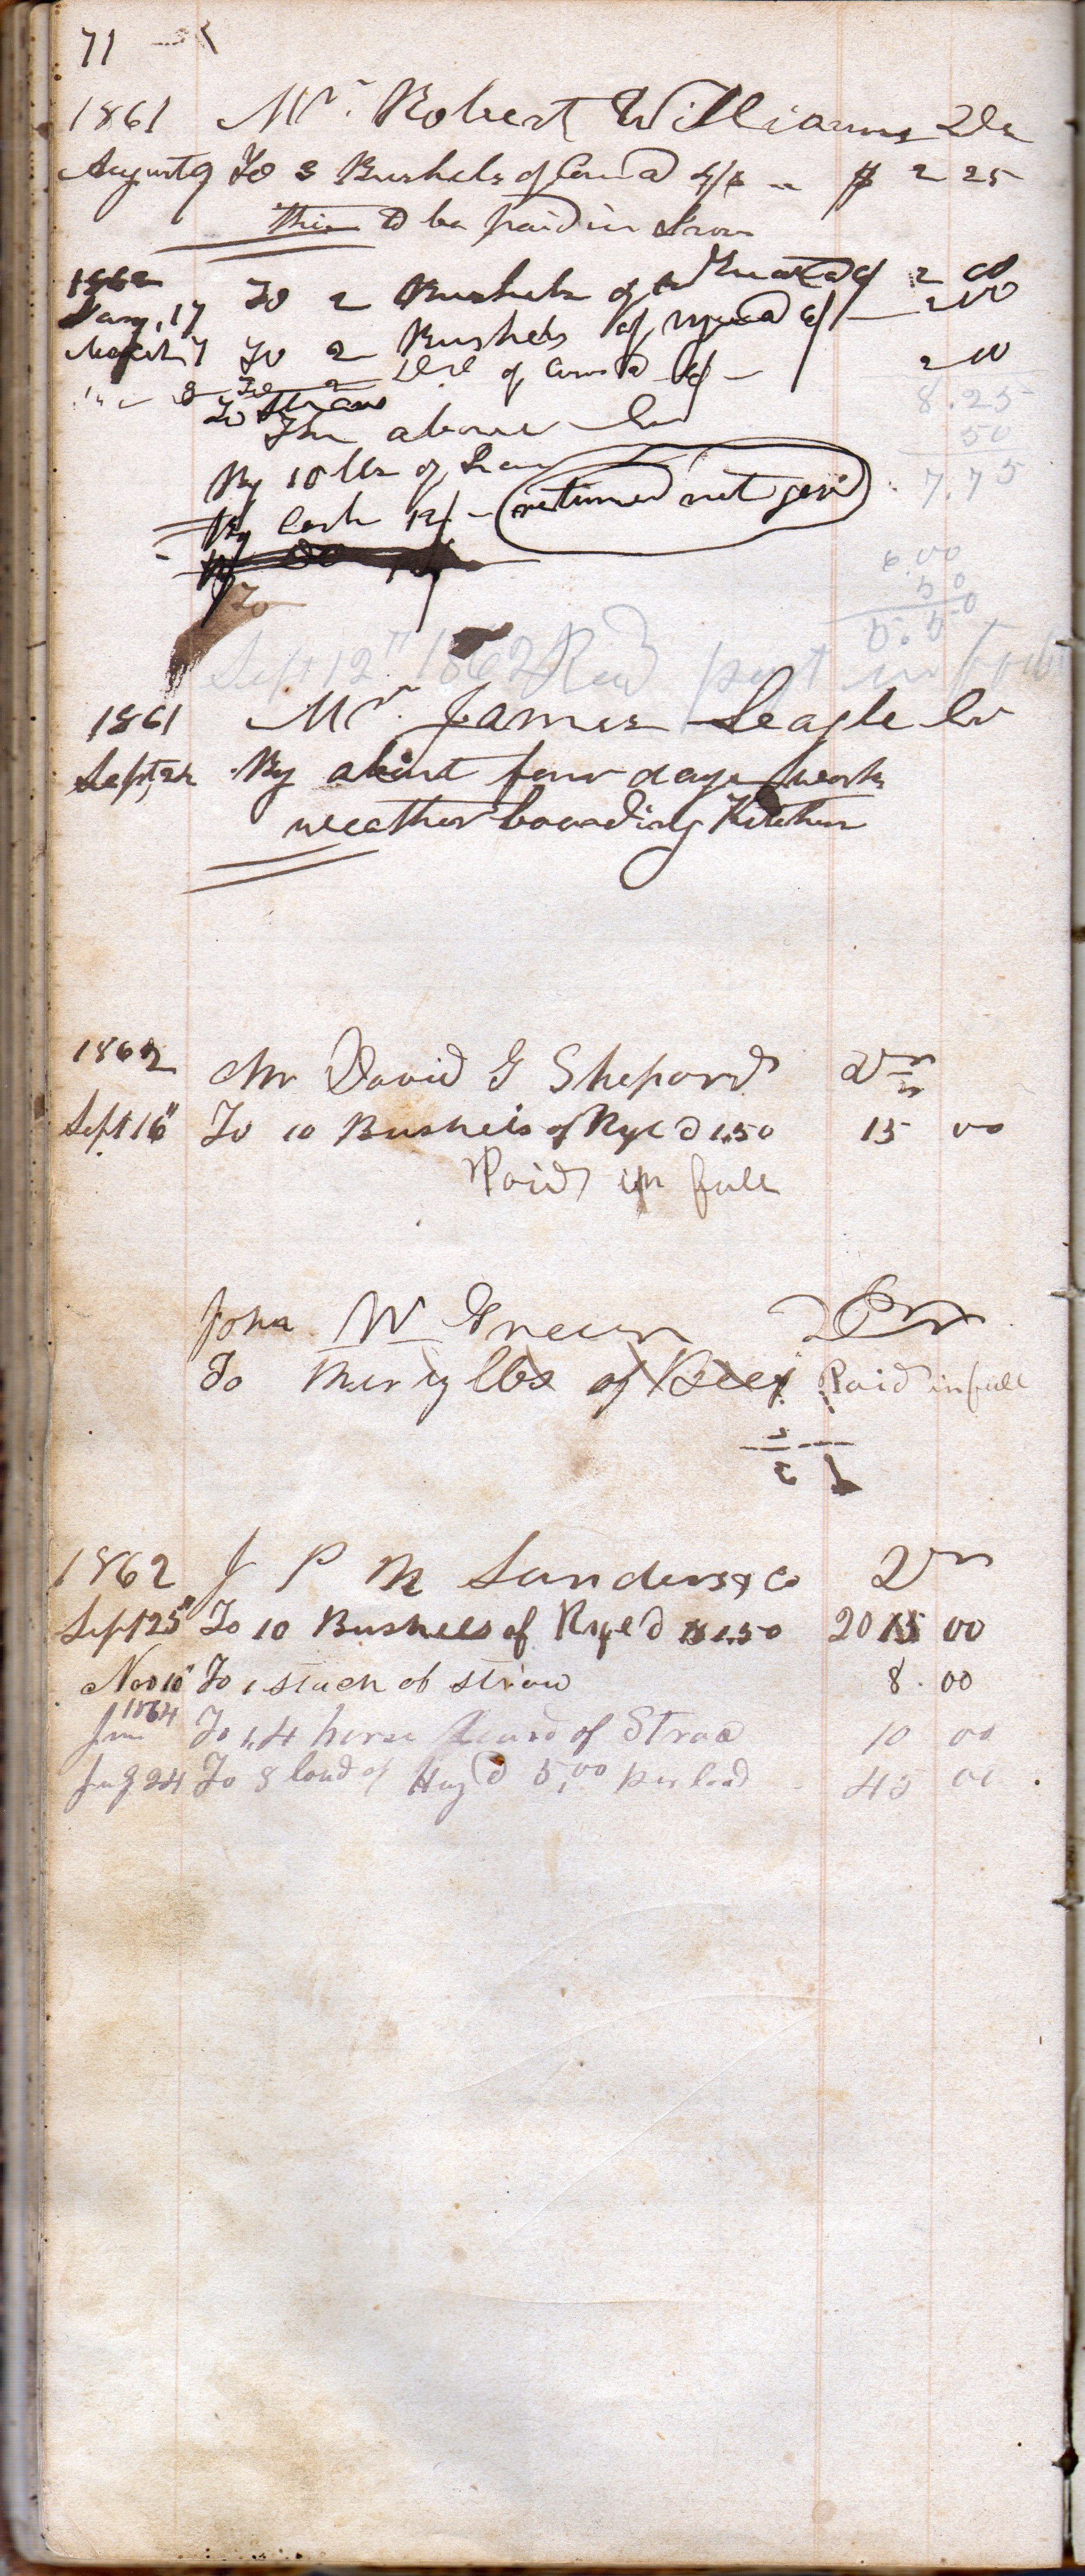 71
1861 Mr. Robert Williams Dr
August 9 To 3 Bushels of Corn @ 4/6 $ 2 25
this to be paid in Iron
1862
Jany, 17 To 2 Bushels of @ 6/ 2 00
March 7 To 2 Bushels of rye @ 6/ 2 00
8 To 2 Do of Corn @ 6/ 2 00
8.25
To Straw
50
The above Cr
7.75
By 10 lbs of Iron
By Cash 12/ returned not good
By Do 12/
6.00
50
5.50
To
Sept 12" 1862 Recd part in
1861 Mr. James Seagle Cr
Sept, 24 By about four days work
weatherboarding Kitchen
1862 Mr David G Shepard Dr
Sept 16" To 10 Bushels of Rye @ 1.50 15 00
Paid in full
John W Green Dr
To lbs of Beef Paid in full
1862 J P M Sanders & Co Dr
Sept 25" To 10 Bushels of Rye @ 1.50 20 15 00
Nov 10" To 1 stack of straw 8.00
1864
To 1, 4 horse of Straw 10 00
24 To 8 load of Hay @ 5,00 per load 45 00